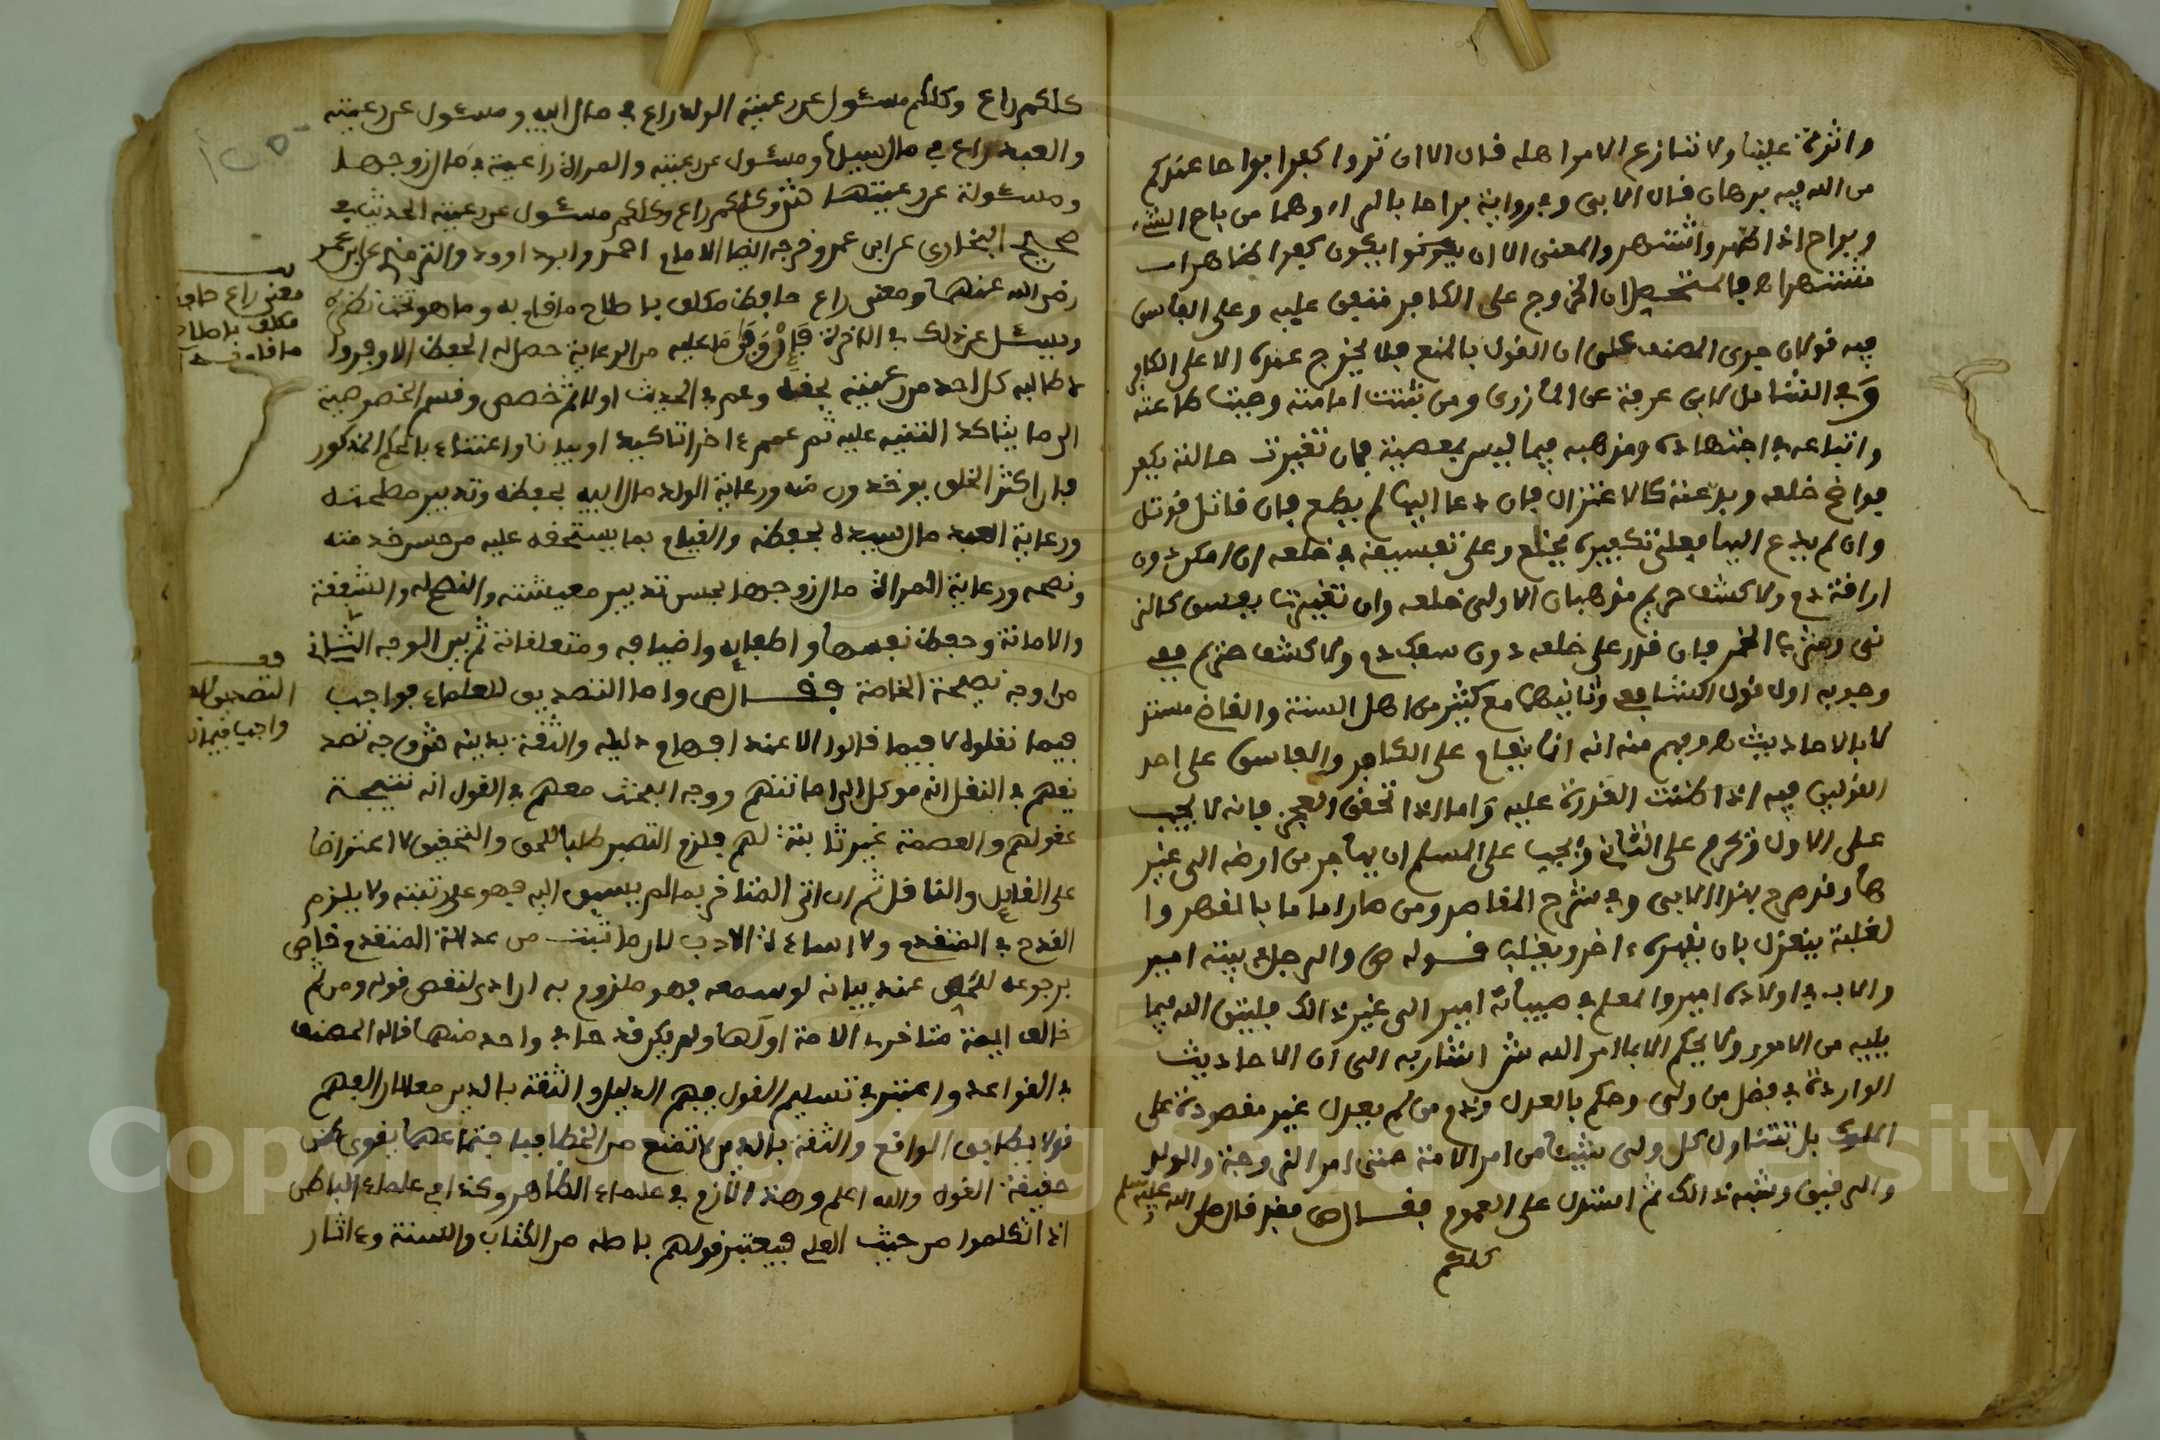 واثرة علينا ولا ننازع الامر اهله قال الا ان تروا كفرا بواحا عندكم
من الله فيه برهان قال الابي وفي رواية براحا بالراء وهما من باح الشيء
وبراح اذا ظهر واشتهر والمعنى الا ان يكون كفرا ظاهرا
مشتهرا ان الخروج على الكافر متفق عليه وعلى الفاسق
فيه قولان جرى المصنف على ان القول بالمنع فلا يخرج عنده الا على الكافر
وفي الشامل لابن عرفة عن المازري ومن ثبتت امامته وجبت طاعته
واتباعه في اجتهاده ومذهبه فيما ليس بمعصية فان تغيرت حالته بكفر
فواضح خلعه وبدعته كالاعتزال فان دعا اليها لم يطع فان قاتل قوتل
وان لم يدع اليها فعلى تكفيره يخلع وعلى تفسيقه في خلعه ان امكن دون
اراقة دم ولا كشف حريم مذهبان الاولى خلعه وان تغيرت بفسق كالز
نى وشرب الخمر فان قدر على خلعه دون سفك دم ولا كشف حريم ففي
وجوبه اول قولي وثانيهما مع كثير من اهل السنة والقاضي مستد
لا بالاحاديث فهم منه انه انما يقام على الكافر والفاسق على احد
القولين فيه اذا كانت القدرة عليه واما اذا تحقق العجز فانه لا يجب
على الاول ويحرم على الثاني ويجب على المسلم ان يهاجر من ارضه الى غير
ها وقد صرح بهذا الابي وفي شرح المقاصد ومن صار اماما بالقهر وا
لغلبة ينعزل بان يقهره ءاخر ويغلبه قوله ص والرجل في بيته امير
والاب في اولاده امير والمعلم في صبيانه امير الى غير ذالك فليتق الله فيما
يليه من الامور ولا يحكم الا بما امر الله ش اشار به الى ان الاحاديث
الواردة في فضل من ولي وحكم بالعدل وذم من لم يعدل غير مقصودة على
الملوك بل تتناول كل ولي شيئا من امر الامة حتى امر الزوجة والولد
والرقيق وشبه ذالك ثم استدل على العموم فقال ص فقد قال صلى الله عليه وسلم
كلكم
كلكم راع وكلكم مسئول عن رعيته الولد راع في مال ابيه ومسئول عن رعيته
والعبد راع في مال سيده ومسئول عن رعيته والمراة راعية في مال زوجها
ومسئولة عن رعيتها ش وكلكم راع وكلكم مسئول عن رعيته الحديث في
صحيح البخاري عن ابن عمر وخرجه ايضا الامام احمد وابو داوود والترمذي عن ابن عمر
رضي الله عنهما ومعنى راع حافظ مكلف باصلاح ما قام به وما هو تحت نظره
ويسئل عن ذلك في الاخرة فان وفى ما عليه من الرعاية حصل له الحظ الاوفر والا
طالبه كل احد من رعيته بحقه وعم في الحديث اولا ثم خصص وقسم الخصوصية
الى ما يتاكد التنبيه عليه ثم عمم ءاخرا تاكيدا وبيانا واعتناء بالحكم المذكور
فان اكثر الخلق يوخذون منه ورعاية الولد مال ابيه بحفظه وتدبير مصلحته
ورعاية العبد مال سيده بحفظه والقيام بما يستحقه عليه من حسن خدمته
ونصحه ورعاية المراة مال زوجها بحسن تدبير معيشته والنصح له والشفقة
والامانة وحفظ نفسها واطفاله واضيافه ومتعلقاته ثم بين الوجه الثاني
من اوجه نصيحة الخاصة فقال ص واما التصديق للعلماء فواجب
فيما نقلوه لا فيما قالوا الا عند افهام دليله والثقة بدينه ش وجه تصد
يقهم في النقل انه موكل الى امانتهم ووجه البحث معهم في القول انه نتيجة
عقولهم والعصمة غير ثابتة لهم فلزم التبصر طلبا للحق والتحقيق لا اعتراضا
على القايل والناقل ثم ان اتى المتاخر بما لم يسبق اليه فهو على رتبته ولا يلزم
القدح في المتقدم ولا اساءة الادب لان ما ثبت من عدالة المتقدم قاض
برجوعه للحق عند بيانه لو سمعه فهو ملزوم به ان ادى لنقص قوله ومن ثم
خالف ايمة متاخرو الامة اولها ولم يكن قدحا في واحد منهما قاله المصنف
في القواعد واعتبر في تسليم القول فهم الدليل والثقة بالدين معا لان الفهم
قولا يطابق الواقع والثقة بالدين لا تمنع من الخطا فباجتماعهما يقوى
حقيقة القول والله اعلم وهذا لازم في علماء الظاهر وكذا في علماء الباطن
اذا تكلموا من حيث العلم فيعتبر قولهم باصله من الكتاب والسنة وءاثار
معنى راع حافظ
مكلف باصلاح
ما قام
فف
التصديق للعلماء
واجب فيما
Copyright © King Saud University